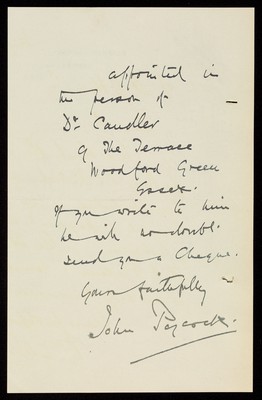 appointed in
the person of
Dr Caudler
9 The Terrace
Woodford Green
Essex.
If you write to him
he will no doubt
send you a Cheque.
Yours faithfully
John Peycock.